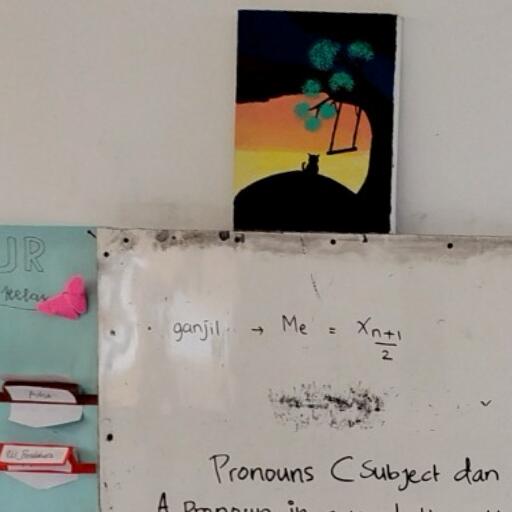 UR
kelas
ganjil → Me = X n+1/2
Pronouns (Subject dan
A Pronoun